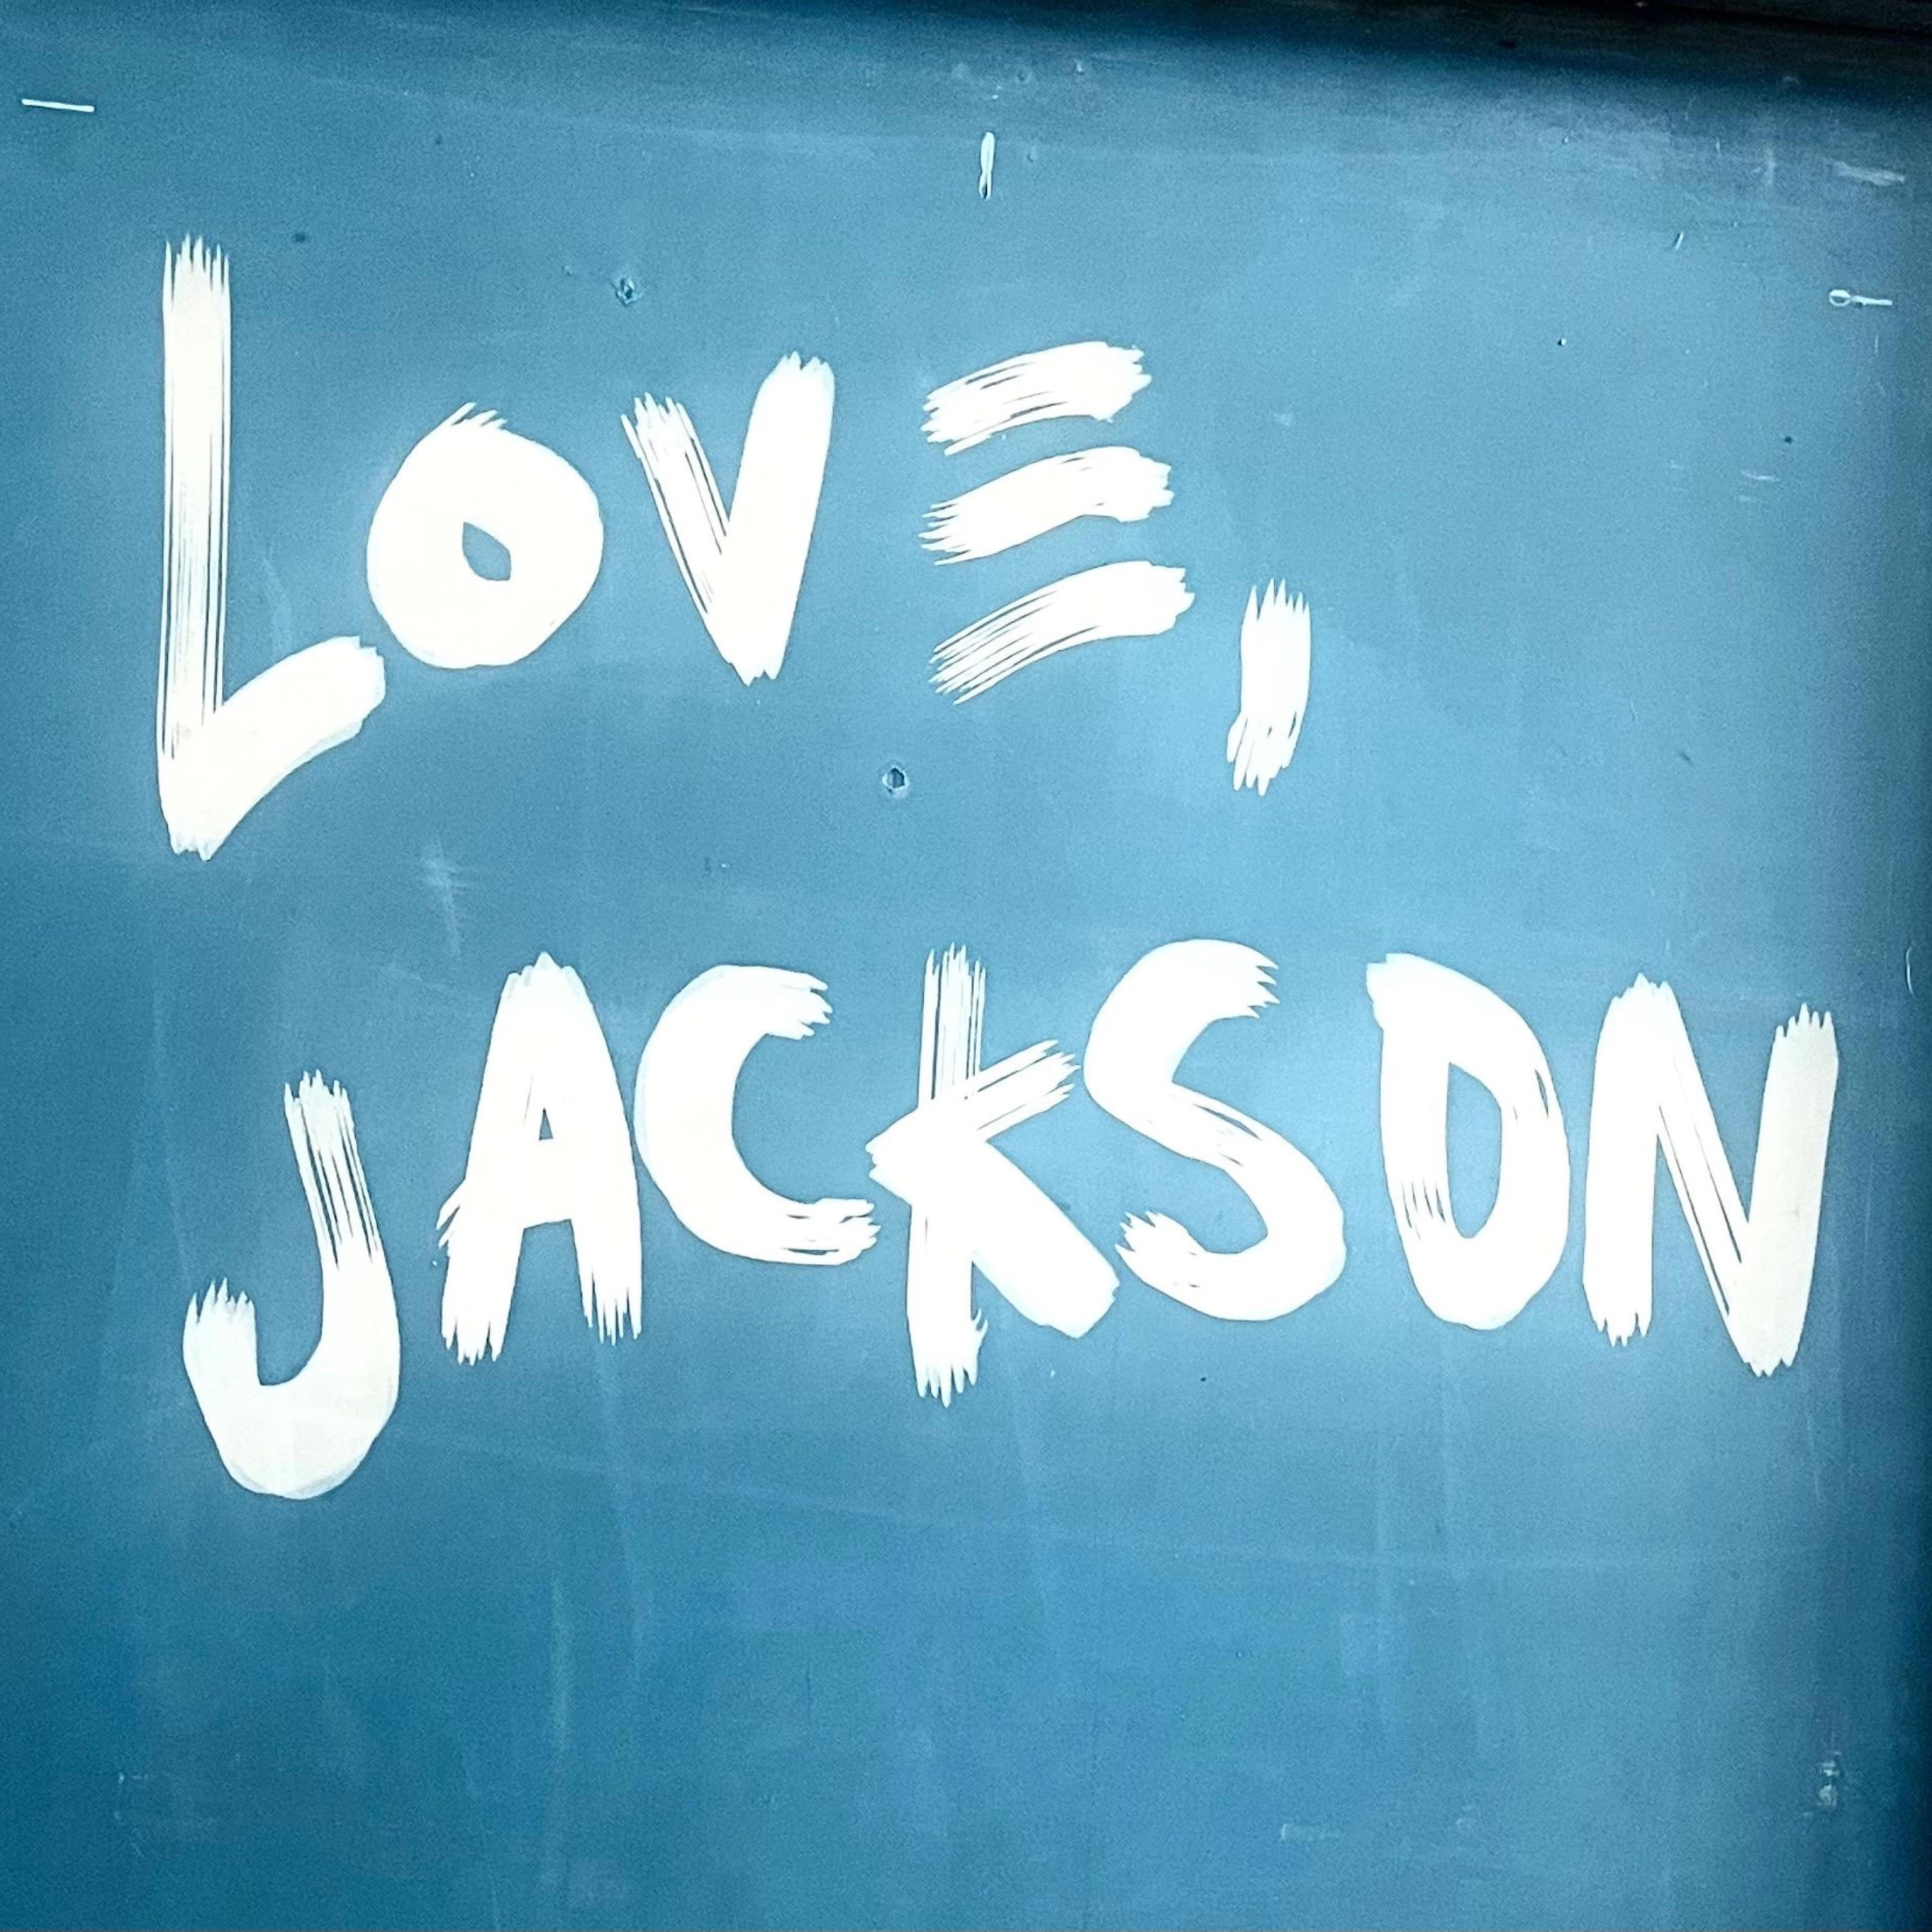 LOVE,
JACKSON